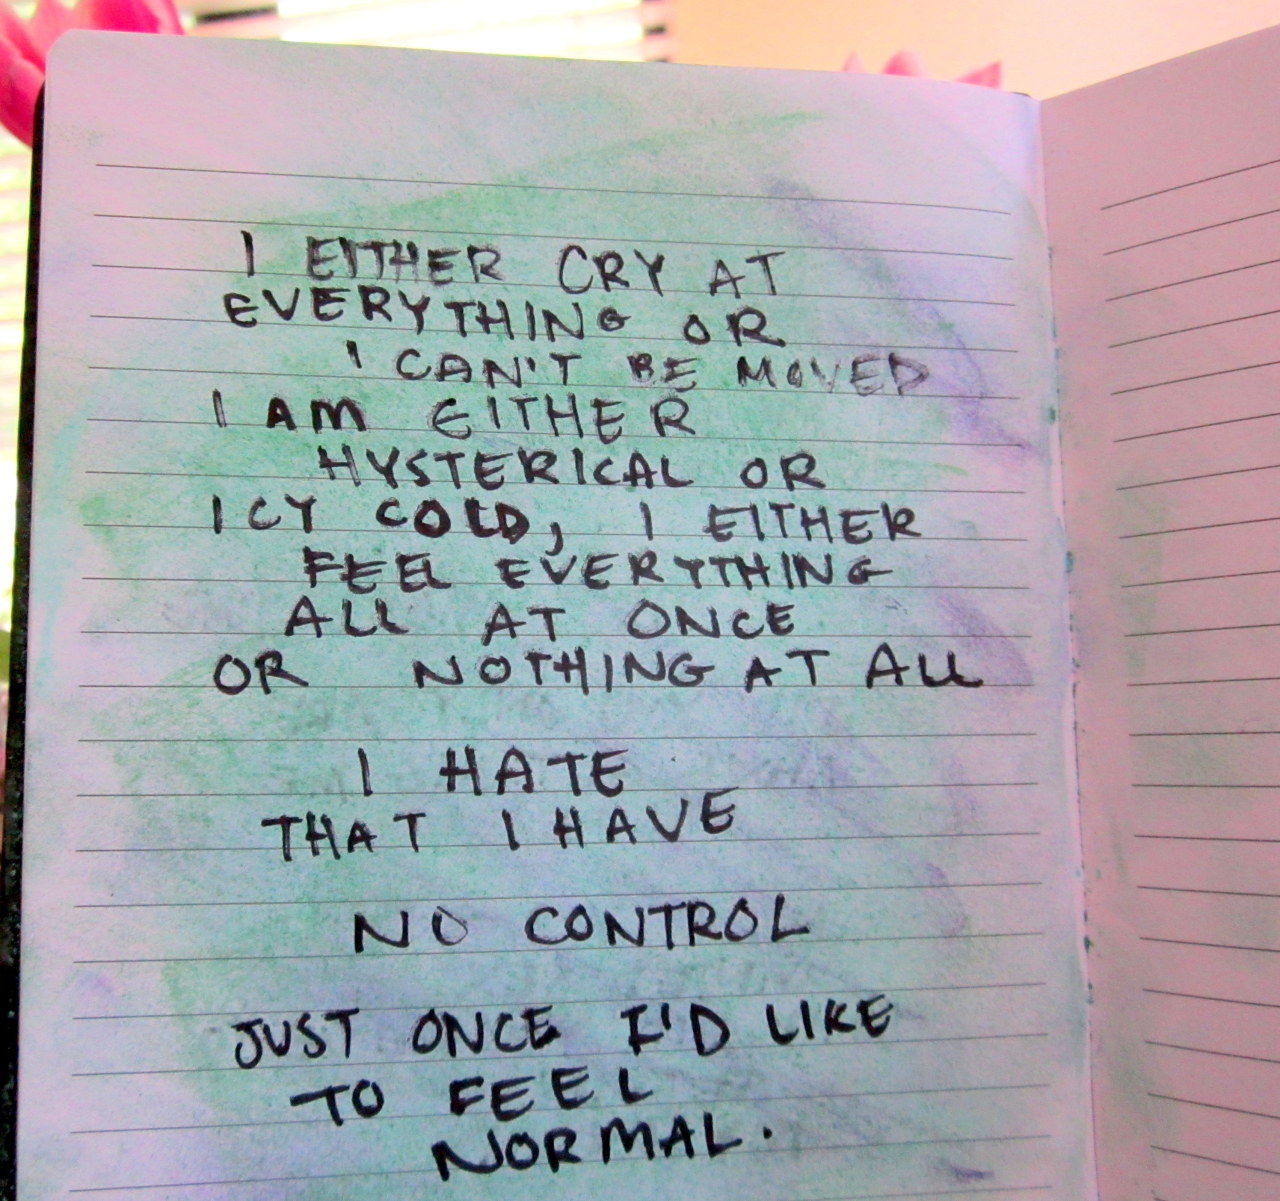 I EITHER CRY AT
EVERYTHING OR
I CAN'T BE MOVED
I AM EITHER
HYSTERICAL OR
ICY COLD, I EITHER
FEEL EVERYTHING
ALL AT ONCE
OR NOTHING AT ALL
I HATE
THAT I HAVE
NO CONTROL
JUST ONCE I'D LIKE
TO FEEL
NORMAL.